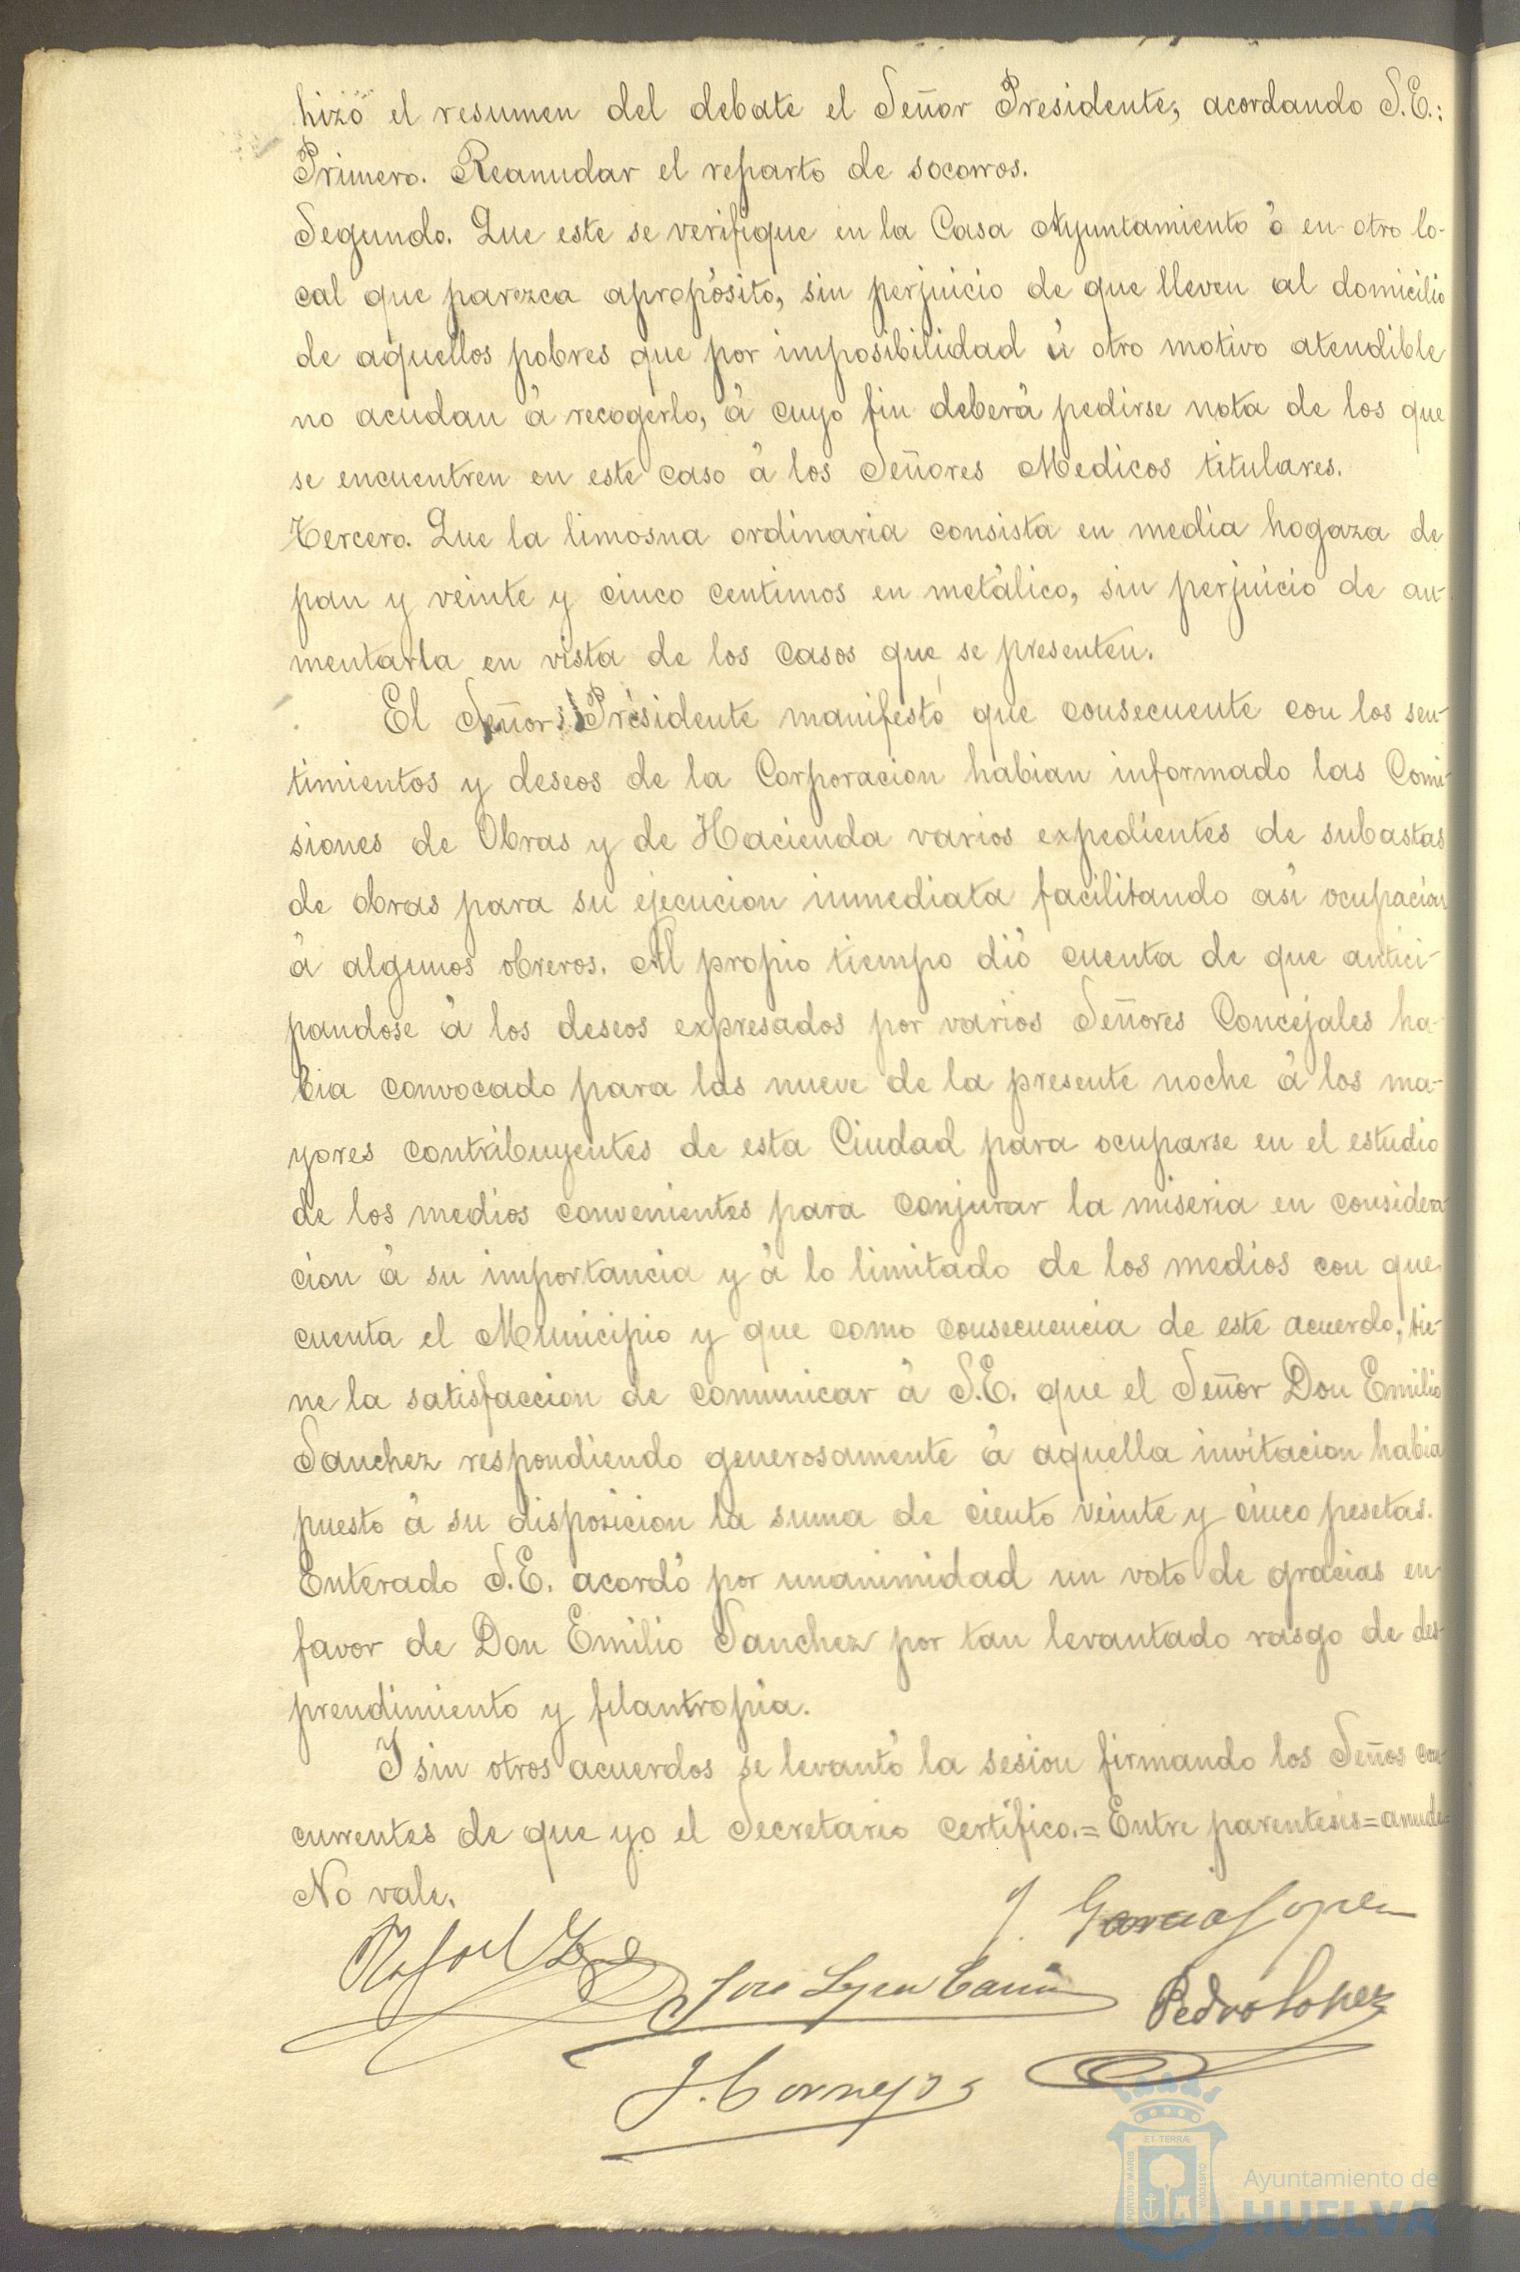 hizo el resumen del debate el Señor Presidente, acordando S.E.:
Primero. Reanudar el reparto de socorros.
Segundo. Que este se verifique en la Casa Ayuntamiento ó en otro lo-
cal que parezca apropósito, sin perjuicio de que lleven al domicilio
de aquellos pobres que por imposibilidad ú otro motivo atendible
no acudan á recogerlo, á cuyo fin deberá pedirse nota de los que
se encuentren en este caso á los Señores Medicos titulares.
Tercero. Que la limosna ordinaria consista en media hogaza de
pan y veinte y cinco centimos en metálico, sin perjuicio de au-
mentarla en vista de los casos que se presenten.
El Señor Presidente manifestó que consecuente con los sen-
timientos y deseos de la Corporacion habian informado las Comi-
siones de Obras y de Hacienda varios expedientes de subastas
de obras para su ejecucion inmediata facilitando así ocupacion
á algunos obreros. Al propio tiempo dió cuenta de que antici-
pandose á los deseos expresados por varios Señores Concejales ha-
bia convocado para las nueve de la presente noche á los ma-
yores contribuyentes de esta Ciudad para ocuparse en el estudio
de los medios convenientes para conjurar la miseria en considera-
cion á su importancia y á lo limitado de los medios con que
cuenta el Municipio y que como consecuencia de este acuerdo, tie-
ne la satisfaccion de comunicar á S.E. que el Señor Don Emilio
Sanchez respondiendo generosamente á aquella invitacion habia
puesto á su disposicion la suma de ciento veinte y cinco pesetas.
Enterado S.E. acordó por unanimidad un voto de gracias en
favor de Don Emilio Sanchez por tan levantado rasgo de des-
prendimiento y filantropia.
Y sin otros acuerdos se levantó la sesion firmando los Seños con-
currentes de que yo el Secretario certifico.=Entre parentesis=anude=
No vale.
J. Garcia Lopez
Rafael
Jose
Pedro Lopez
J. Cornejo
ET TERRÆ
PORTUS MARIS
CUSTODIA
Ayuntamiento de
HUELVA